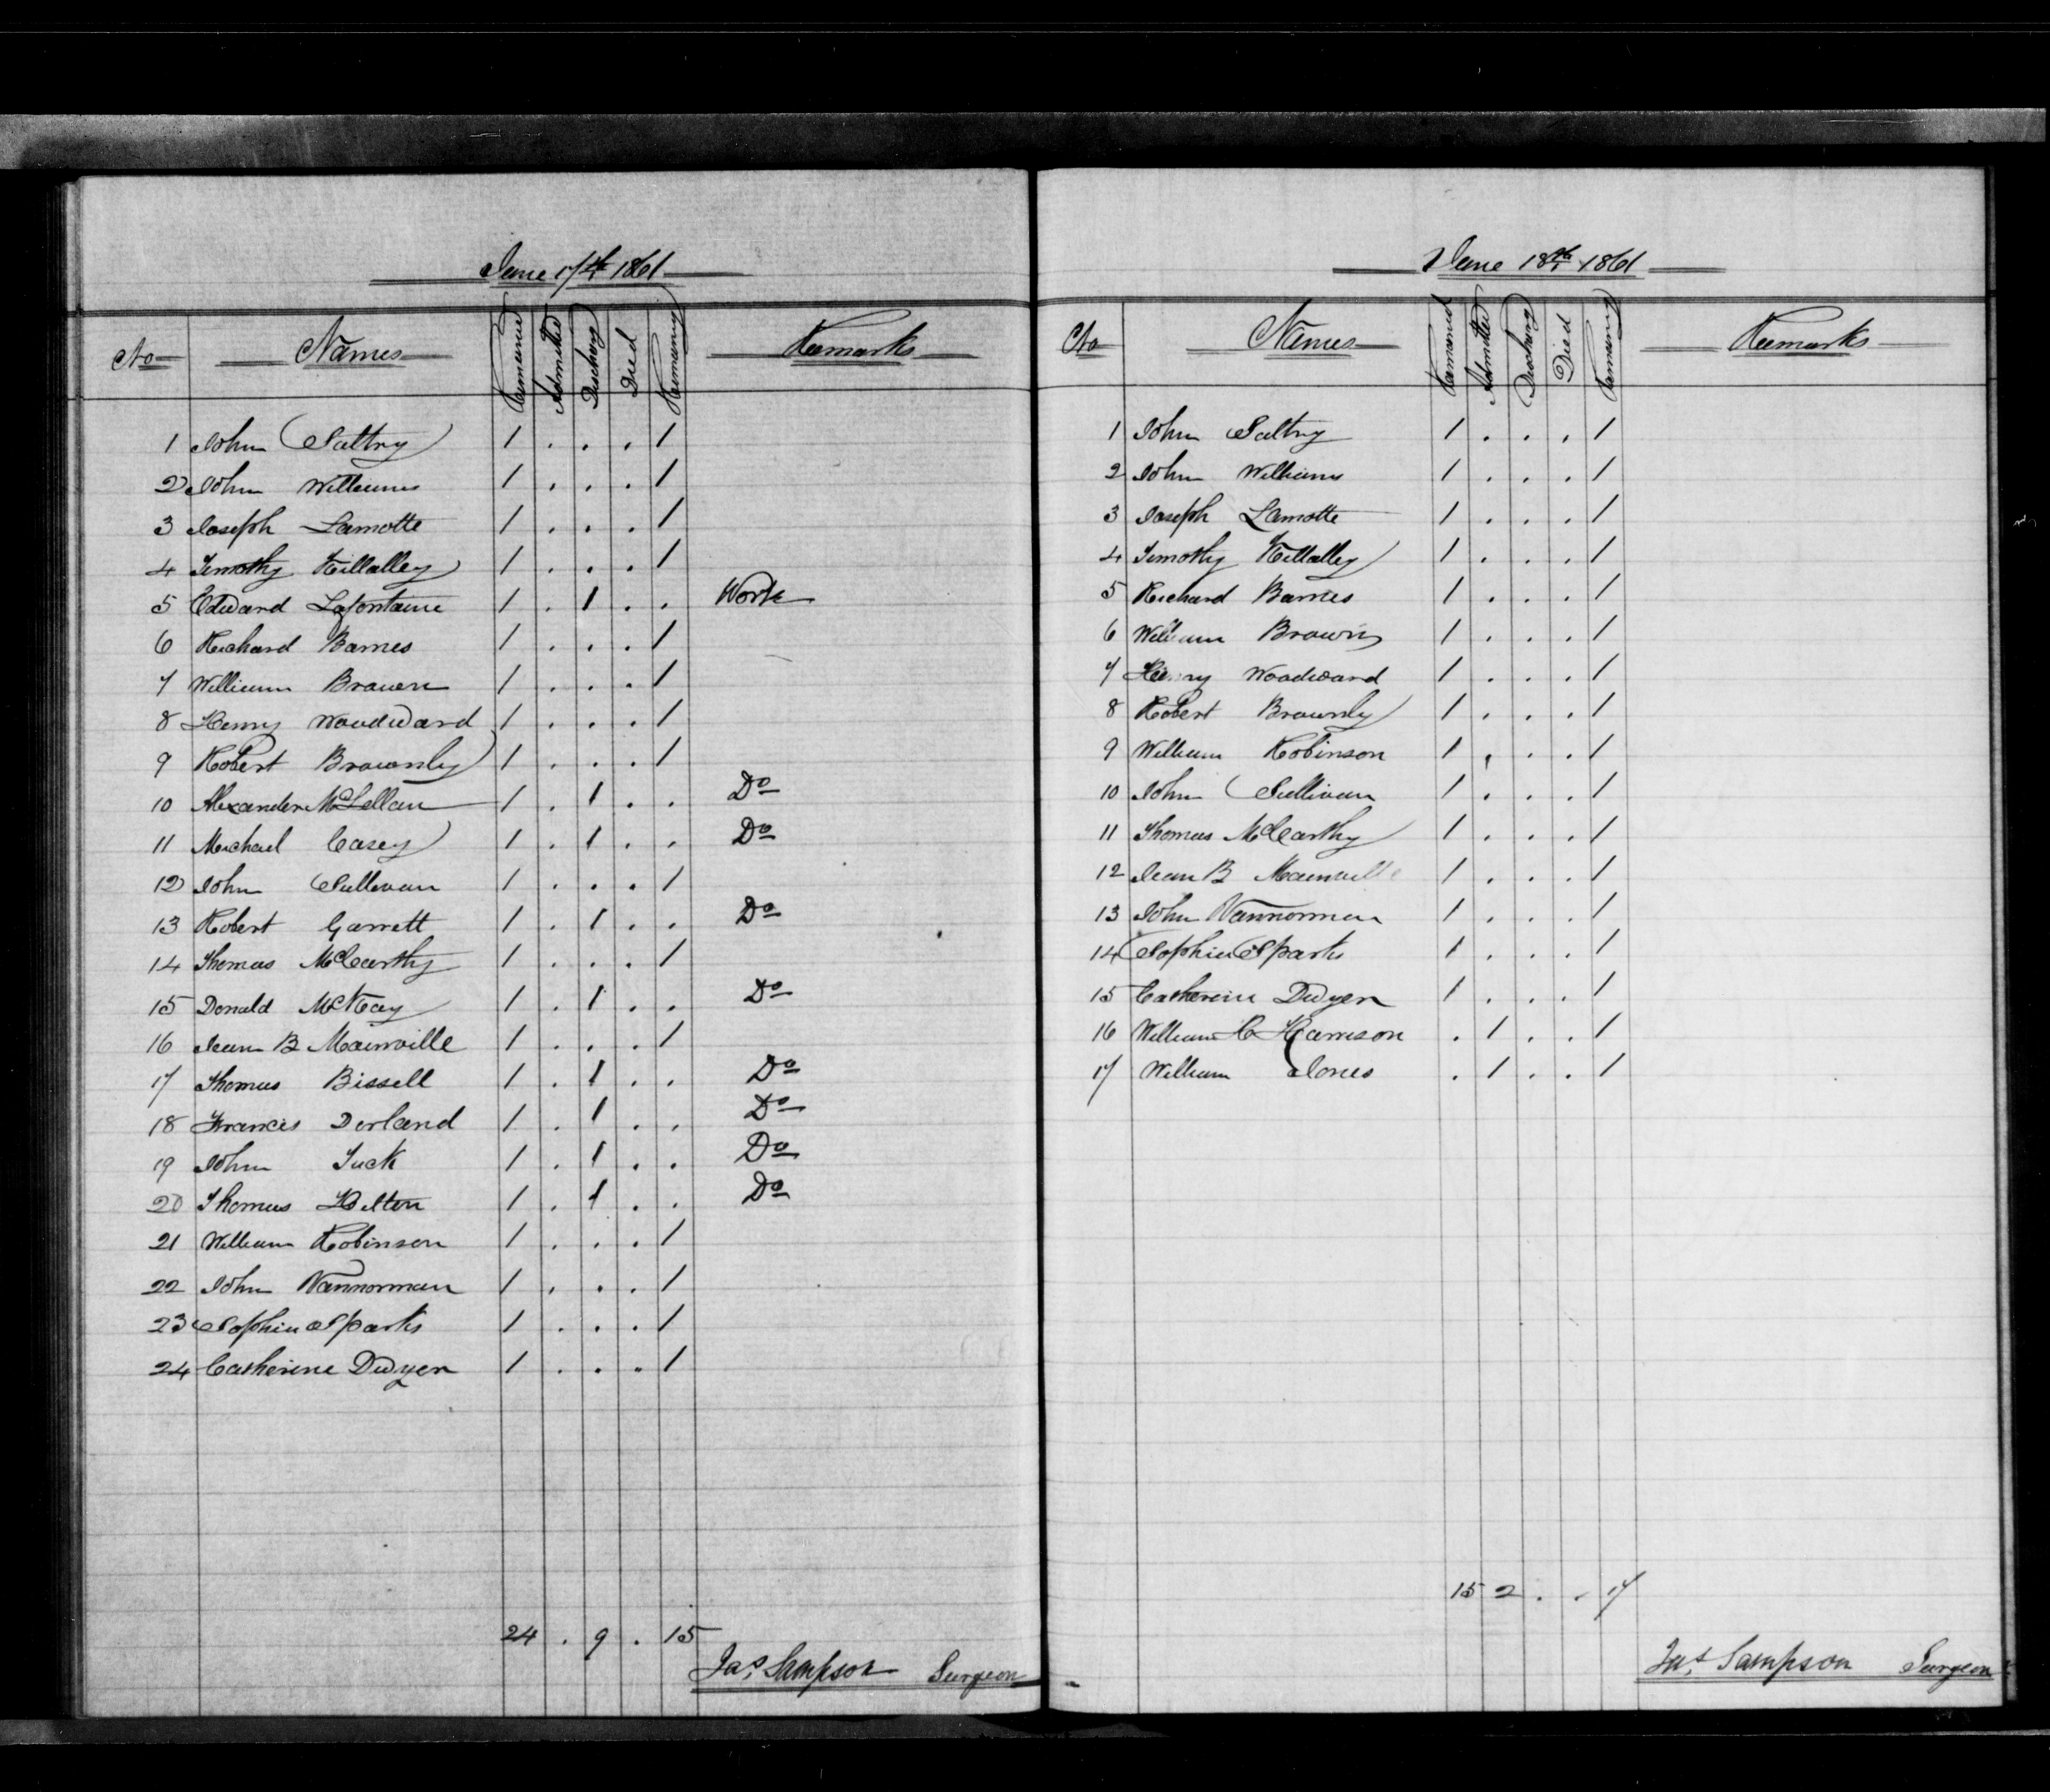 June 17th 1861
No Names Remained Admitted Discharg Died Remaining Remarks
1 John Saltry 1 . . . 1
2 John Williams 1 . . . 1
3 Joseph Lamotte 1 . . . 1
4 Timothy Killalley 1 . . . 1
5 Edward Lafontaine 1 . 1 . . Work
6 Richard Barnes 1 . . . 1
7 William Brown 1 . . . 1
8 Henry Woodward 1 . . . 1
9 Robert Brownly 1 . . . 1
10 Alexander McLellan 1 . 1 . . Do
11 Michael Casey 1 . 1 . . Do
12 John Sullivan 1 . . . 1
13 Robert Garrett 1 . 1 . . Do
14 Thomas McCarthy 1 . . . 1
15 Donald McKay 1 . 1 . . Do
16 Jean B Mainville 1 . . . 1
17 Thomas Bissell 1 . 1 . . Do
18 Francis Dorland 1 . 1 . . Do
19 John Tuck 1 . 1 . . Do
20 Thomas Hilton 1 . 1 . . Do
21 William Robinson 1 . . . 1
22 John Vannorman 1 . . . 1
23 Sophia Sparks 1 . . . 1
24 Catherine Dwyer 1 . . . 1
24 . 9 . 15
Jas. Sampson Surgeon
June 18th 1861
No Names Remained Admitted Discharg Died Remaining Remarks
1 John Saltry 1 . . . 1
2 John Williams 1 . . . 1
3 Joseph Lamotte 1 . . . 1
4 Timothy Killalley 1 . . . 1
5 Richard Barnes 1 . . . 1
6 William Brown 1 . . . 1
7 Henry Woodward 1 . . . 1
8 Robert Brownly 1 . . . 1
9 William Robinson 1 . . . 1
10 John Sullivan 1 . . . 1
11 Thomas McCarthy 1 . . . 1
12 Jean B Mainville 1 . . . 1
13 John Vannorman 1 . . . 1
14 Sophia Sparks 1 . . . 1
15 Catherine Dwyer 1 . . . 1
16 William C Harrison . 1 . . 1
17 William Jones . 1 . . 1
15 2 . . 17
Jas. Sampson Surgeon